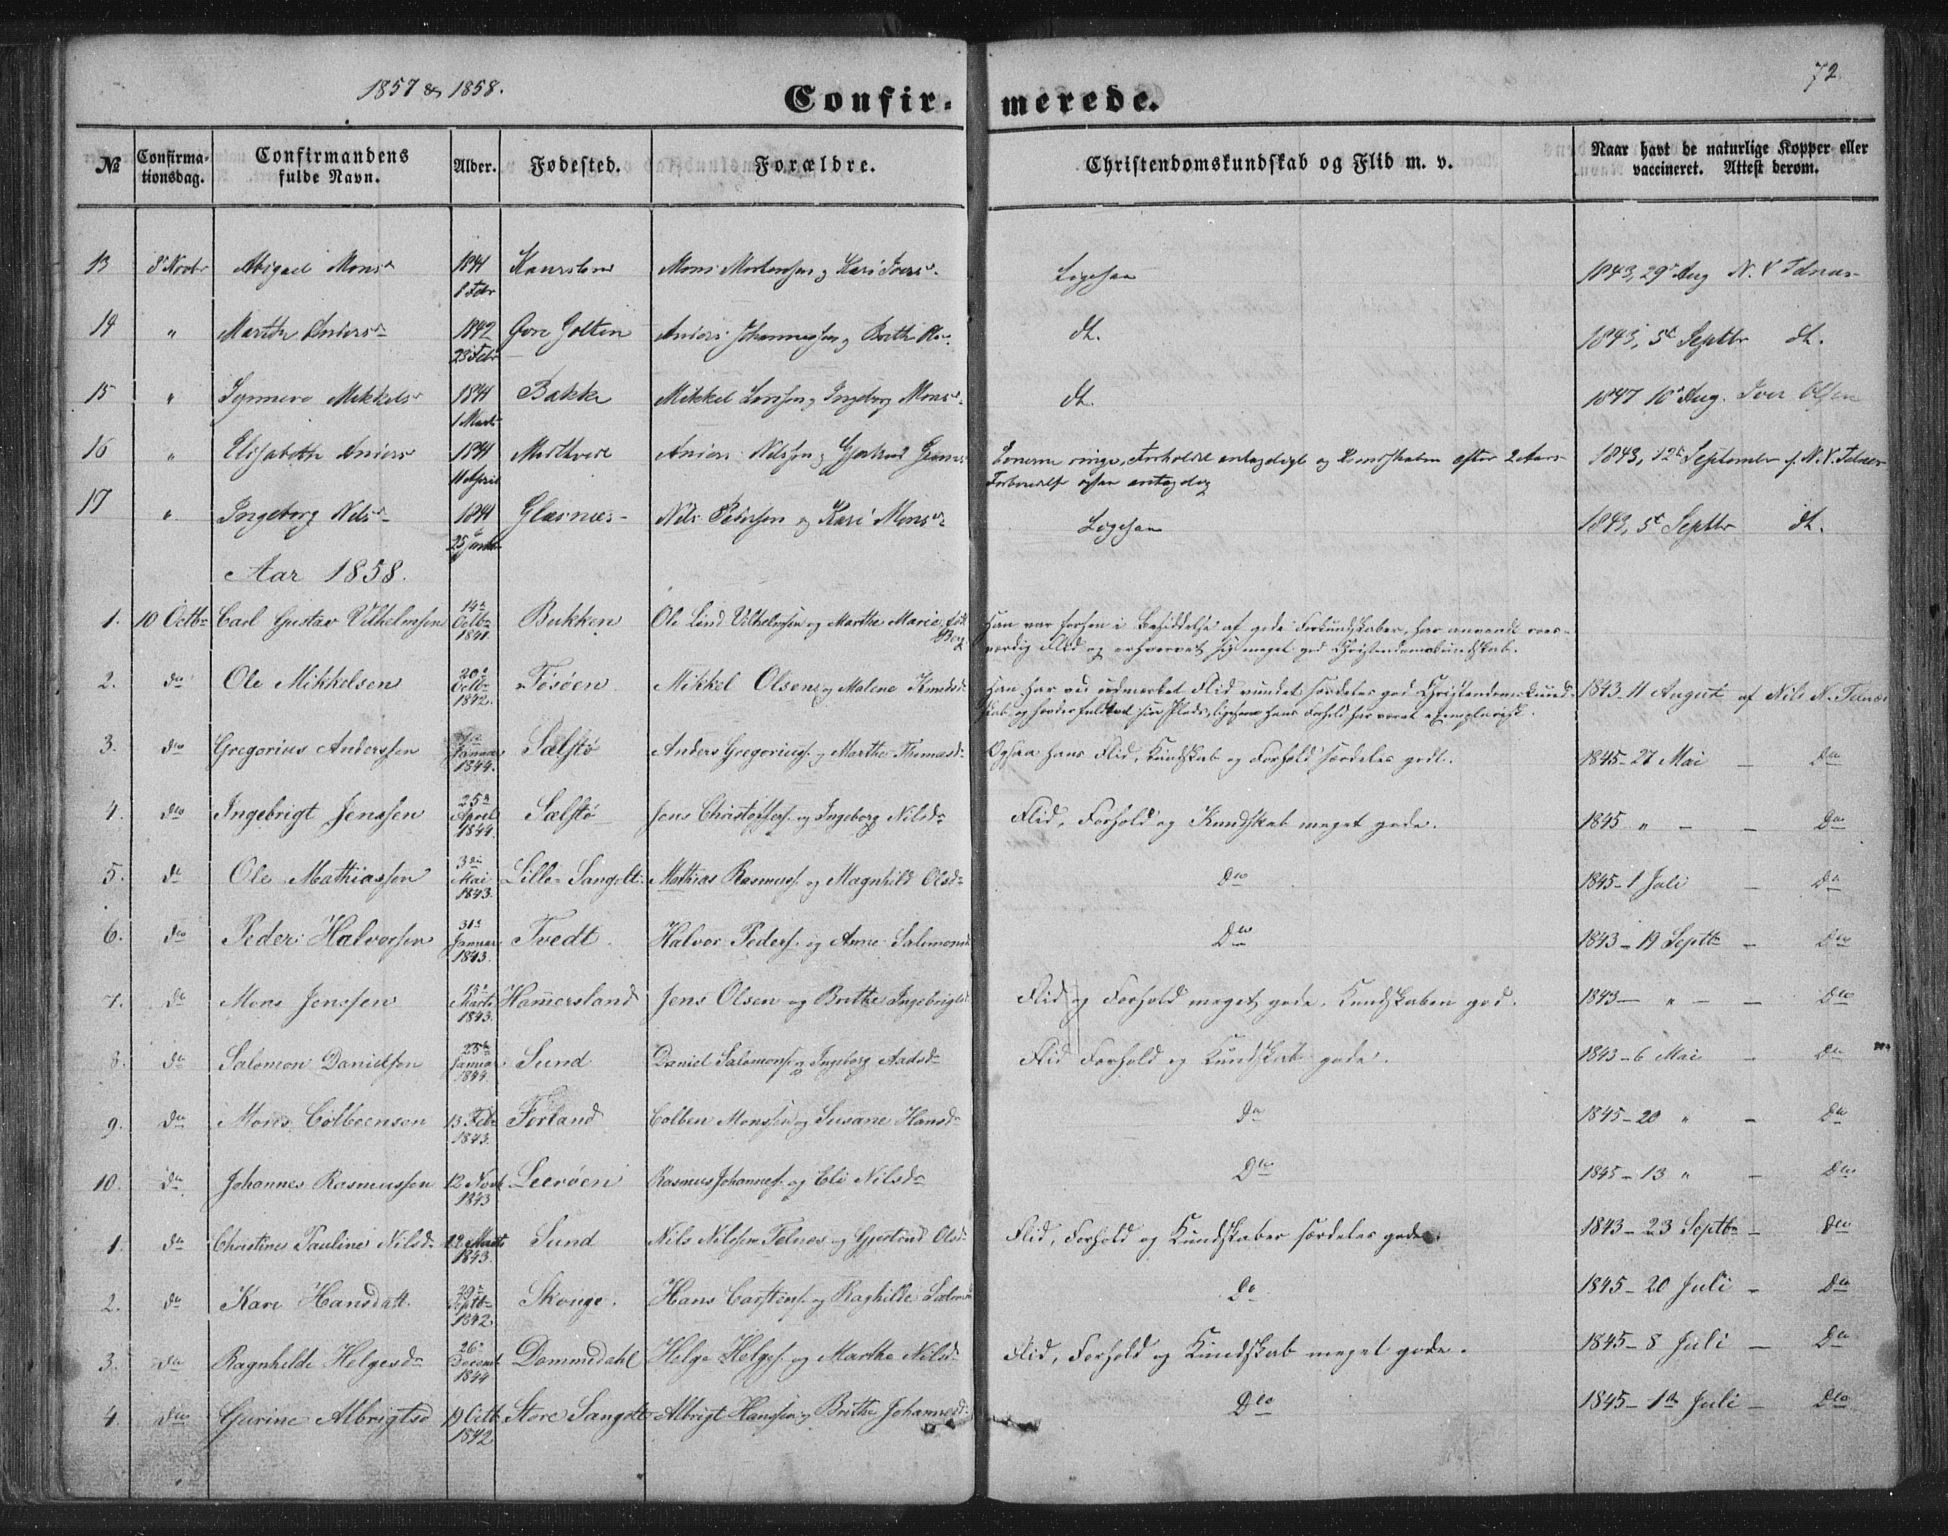 1857 & 1858.
Confirmerede.
72
№ Confirmationsdag. Confirmandens fulde Navn. Alder. Fødested. Forældre. Christendomskundskab og Flid m. v. Naar havt de naturlige Kopper eller vaccineret. Attest derom.
13 8 Novbr Abigael Monsd 1841 8 Febr Mons Mortensen og Kari Iversd. Ligesaa 1843, 29 Aug N. V. Telnæs
14 " Marthe Andersd 1842 23 Febr Øvre Golten Anders Johannessen og Brithe dt. 1843, 5t Septbr dt.
15 " Synneve Mikkelsd 1841 1 Marts Bakke Mikkel Larssen og Ingeborg Monsd. dt. 1847 10 Aug. Iver Olsen
16 " Elisabeth Andersd 1841 11 April Anders Nilssen og Gjertrud Evnerne ringe, Forholdet antageligt og Kundskaben efter 2 Aars 1843, 12t September f. N. V. Telnæs
Forberedelse ogsaa antagelig
17 " Ingeborg Nilsd 1841 25 Glæsnæs Nils Pedersen og Kari Monsd Ligesaa 1843, 5t Septbr dt.
Aar 1858.
1. 10 Octbr Carl Gustav Vilhelmsen 14de Octbr 1841. Bukken Ole Lind Vilhelmsen og Marthe Marie, født Boy Han var forhen i Besiddelse af gode Forkundskaber, har anvendt roes-
værdig Flid og erhvervet sig meget god Christendomskundskab.
2. do Ole Mikkelsen 20de Octbr 1842. Tøsøen Mikkel Olsen og Malene Knudsd Han har ved udmærket Flid vundet særdeles god Christendomskund- 1843. 11 August af Nils N. Telnæs
skab og hæderfuldt sin Plads, ligesom hans Forhold har været exemplarisk.
3. do Gregorius Anderssen Januar 1844. Sælstø Anders Gregoriuss. og Marthe Thomasd. Ogsaa hans Flid, Kundskab og Forhold særdeles godt. 1845 - 27 Mai - Do
4. do Ingebrigt Jenssen 25de April 1844. Sælstø Jens Christoffers. og Ingeborg Nilsdr Flid, Forhold og Kundskab meget gode. 1845 " - - Do
5. do Ole Mathiassen 3die Mai 1843. Lille-Sangolt. Mathias Rasmuss. og Magnhild Olsdr Do 1845 - 1 Juli - Do
6. do Peder Halvorsen 31te Januar 1843. Tvedt. Halvor Peders. og Anne Salomonsd Do 1843 - 19 Septbr - Do
7. do Mons Jenssen 15de Marts 1843. Hamersland Jens Olsen og Brithe Ingebrigtsd Flid og Forhold meget gode, Kundskaben god. 1843 - " - - Do
8. do Salomon Danielsen 25de Januar 1844. Sund Daniel Salomons. og Ingeborg Aadsdr Flid Forhold og Kundskab gode. 1843 - 6 Mai - Do
9. do Mons Colbeensen 13 Febr 1843. Førland Colben Monssen og Susane Hansdr Do 1845 - 20 " - Do
10. do Johannes Rasmussen 12 Novbr 1843 Leerøen Rasmus Johanness. og Eli Nilsdr Do 1845 - 13 " - Do
1. do Christine Pauline Nilsdr 12 Marts 1843. Sund Nils Nilssen Telnæs og Gjertrud Olsd Flid, Forhold og Kundskaber særdeles gode. 1843 - 23 Septbr - Do
2. do Kari Hansdatt. 29de Septbr 1842. Skouge. Hans Carstens. og Raghilde Do 1845 - 20 Juli - Do
3. do Ragnhilde Helgesdr 26de Decembr 1844 Dommedahl Helge Helges. og Marthe Nilsd Flid, Forhold og Kundskab meget gode. 1845 - 8 Juli - Do
4. do Gurine Albrigtsd 19 Octb. 1842 Store Sangolt Albrigt Hanssen og Brithe Johannesd. Do 1845 - 1ste Juli - Do